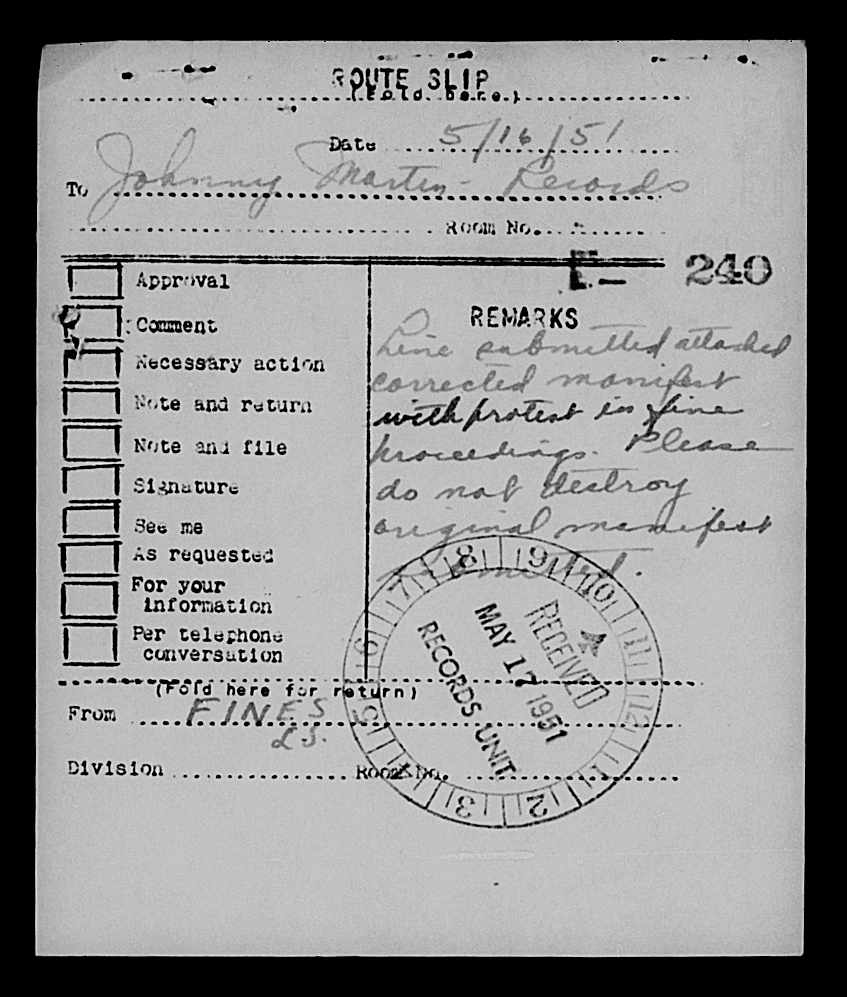 ROUTE SLIP
(Fold here.)
Date 5/16/51
To Johnny Martin - Records
Room No.
E- 240
Approval
Comment
Necessary action
Note and return
Note and file
Signature
See me
As requested
For your
information
Per telephone
conversation
REMARKS
Line submitted attached
corrected manifest
with protest in fine
proceedings. Please
do not destroy
original manifest
submitted.
8 9 10 11 12 1 2 3 4 5 6 7
RECEIVED
MAY 17 1951
RECORDS UNIT
(Fold here for return)
From FINES
L.S.
Division Room No.